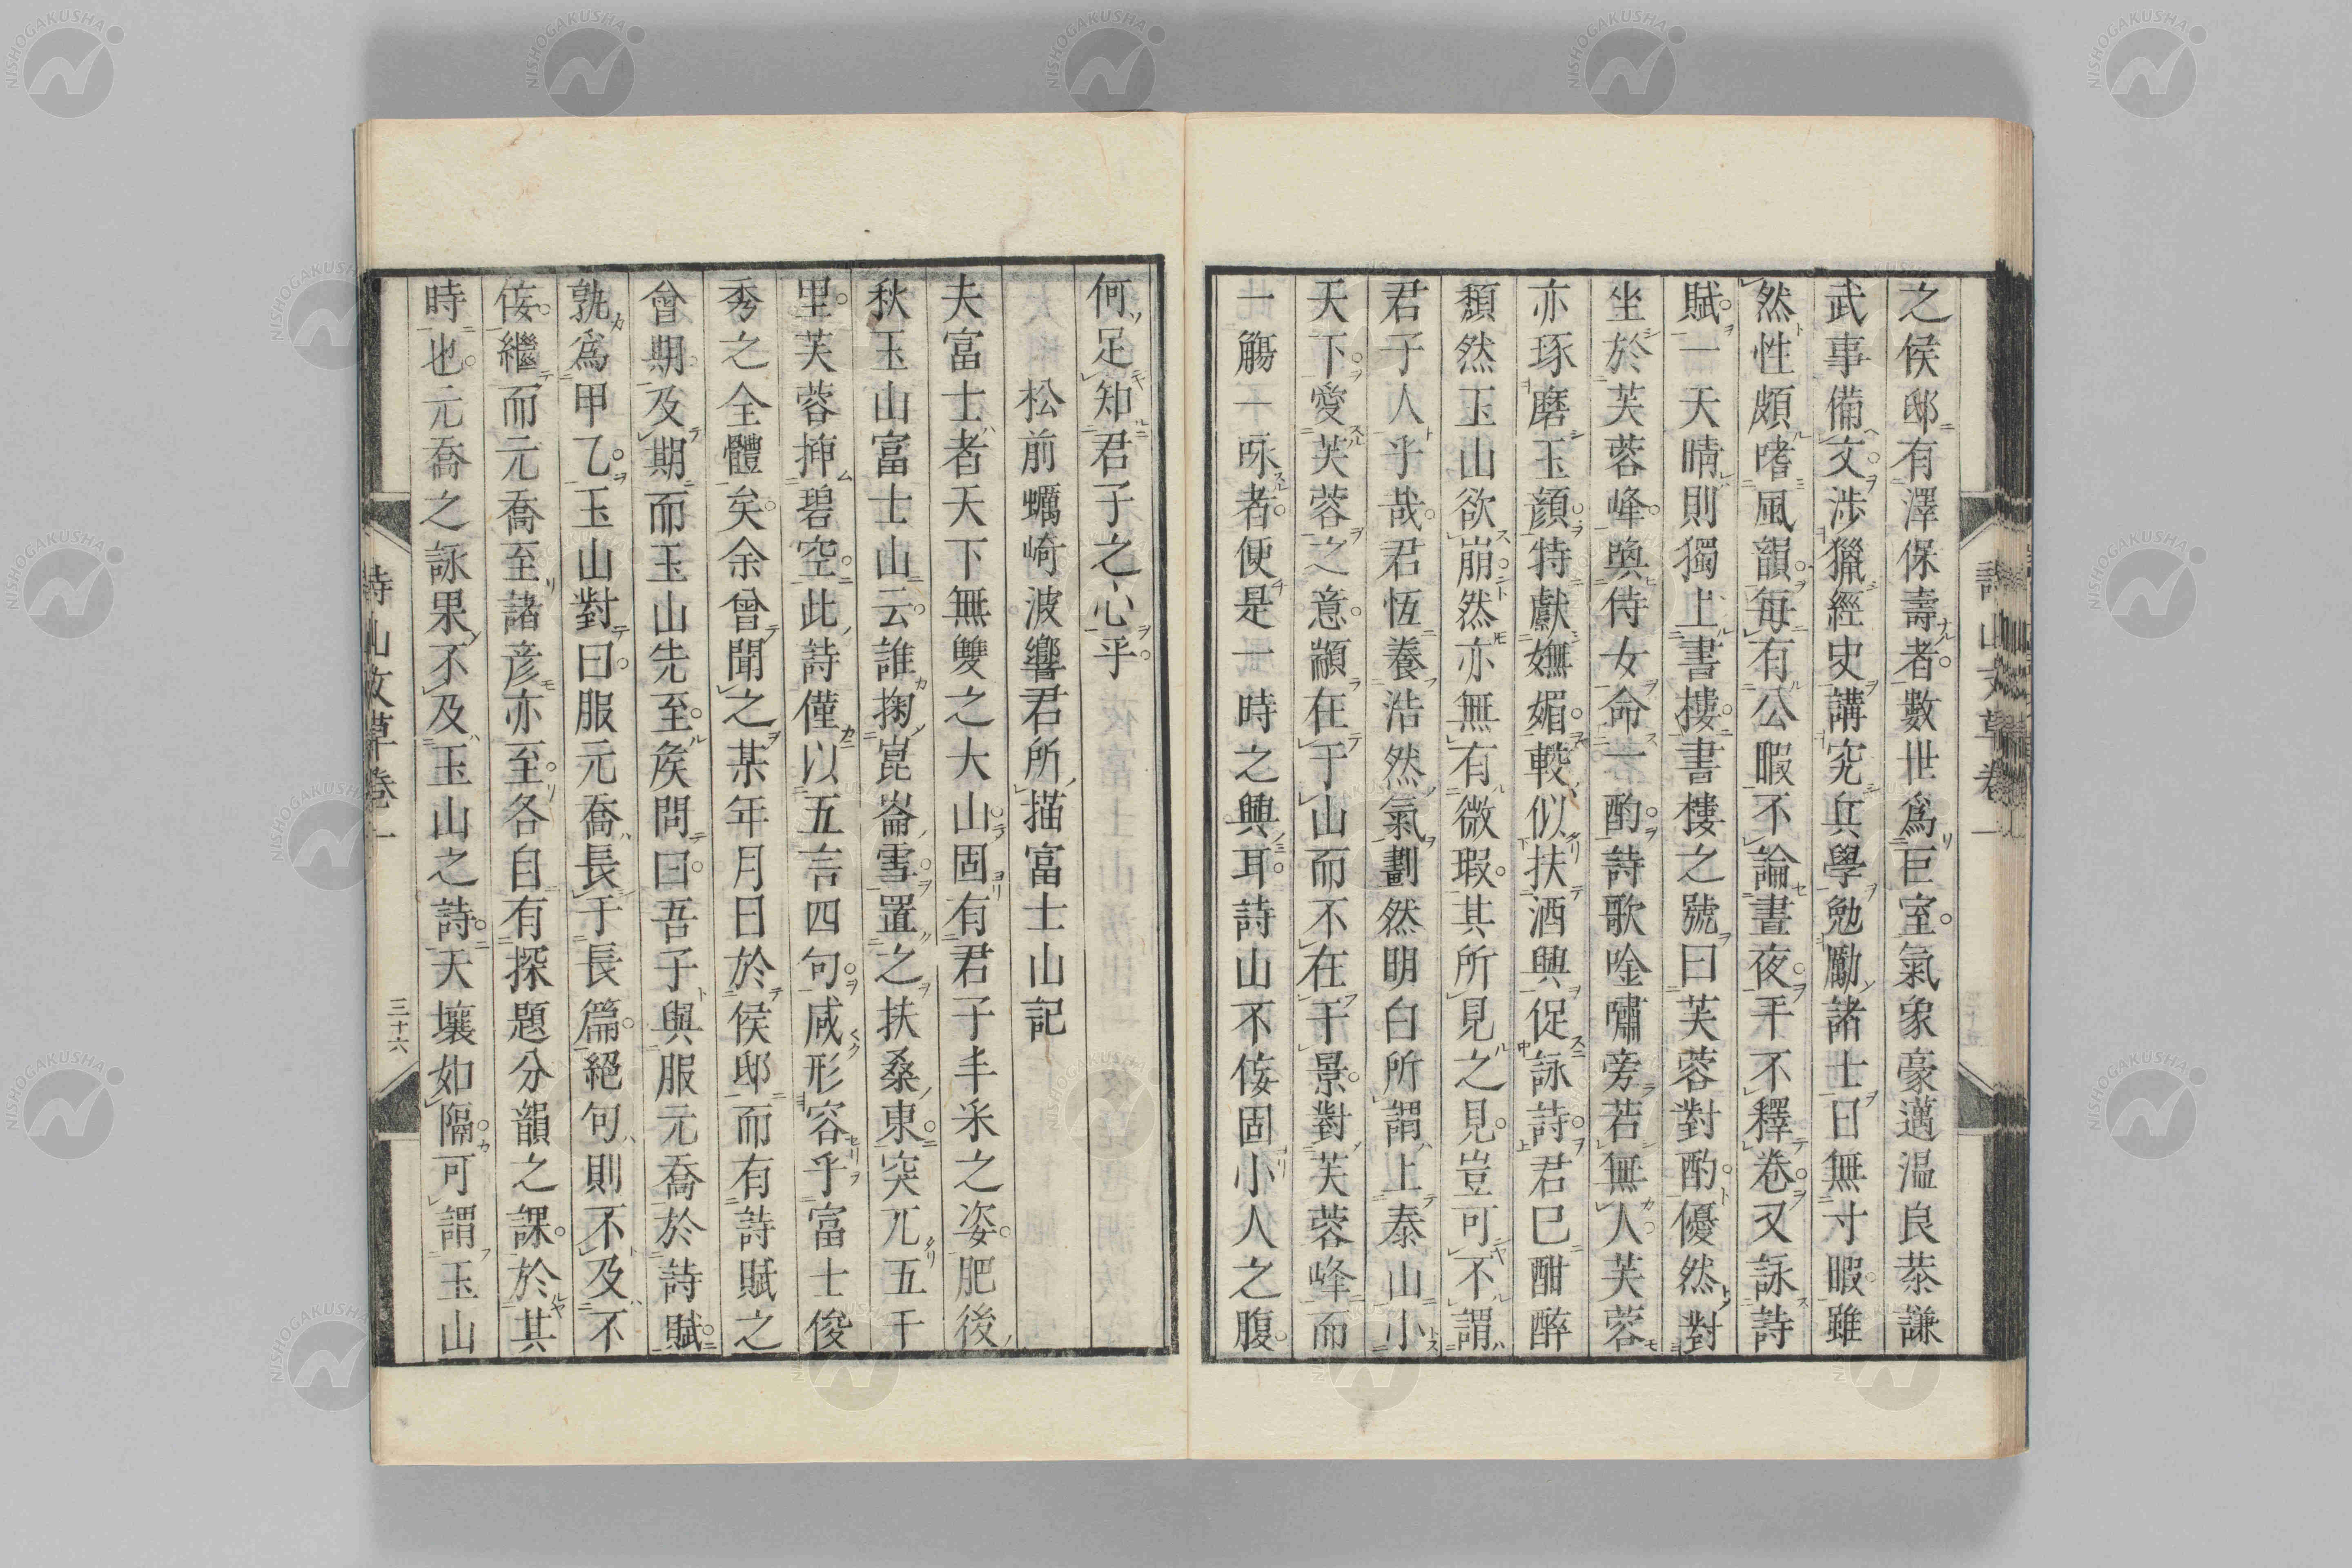 之侯邸有澤保壽者數世爲巨室氣象豪邁温良恭謙
武事備文涉獵經史講究兵學勉勵諸士日無寸暇雖
然性頗嗜風韻每有公暇不論晝夜手不釋卷又詠詩
賦一天晴則獨上書樓書樓之號曰芙蓉對酌優然對
坐於芙蓉峰喚侍女命一酌詩歌唫嘯旁若無人芙蓉
亦琢磨玉顏特獻嫵媚較似扶酒興促詠詩君已酣醉
頹然玉山欲崩然亦無有微瑕其所見之見豈可不謂
君子人乎哉君恆養浩然氣劃然明白所謂上泰山小
天下愛芙蓉之意顓在于山而不在于景對芙蓉峰而
一觴一咏者便是一時之興耳詩山不侫固小人之腹
詩山文草卷一
何足知君子之心乎
松前蠣崎波響君所描富士山記
夫富士者天下無雙之大山固有君子丰采之姿肥後
秋玉山富士山云誰掬崑崙雪置之扶桑東突兀五千
里芙蓉挿碧空此詩僅以五言四句咸形容乎富士俊
秀之全體矣余曾聞之某年月日於侯邸而有詩賦之
會期及期而玉山先至矦問曰吾子與服元喬於詩賦
孰爲甲乙玉山對曰服元喬長于長篇絕句則不及不
侫繼而元喬至諸彦亦至各自有探題分韻之課於其
時也元喬之詠果不及玉山之詩天壤如隔可謂玉山
詩山文草卷一
三十六
NISHOGAKUSHA